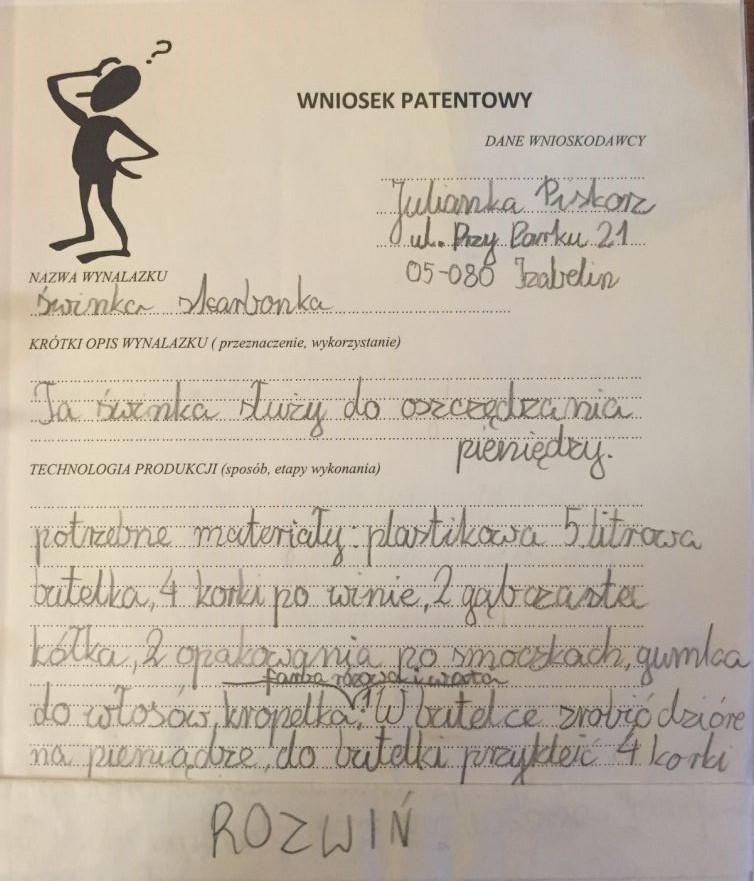 ?
WNIOSEK PATENTOWY
DANE WNIOSKODAWCY
Julianka Piskorz
ul. Przy Parku 21
05-080 Izabelin
NAZWA WYNALAZKU
świnka skarbonka
KRÓTKI OPIS WYNALAZKU ( przeznaczenie, wykorzystanie)
Ta świnka służy do oszczędzania
pieniędzy.
TECHNOLOGIA PRODUKCJI (sposób, etapy wykonania)
potrzebne materiały: plastikowa 5 litrowa
butelka, 4 korki po winie, 2 gąbczaste
kółka, 2 opakowania po smoczkach, gumka
farba różowa i
do włosów, kropelka. W butelce zrobić dzióre
na pieniądze, do butelki przykleić 4 korki
ROZWIŃ